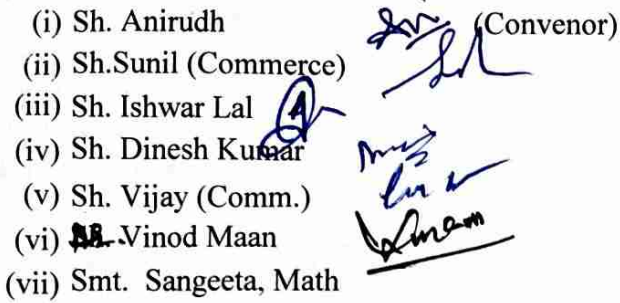 (i) Sh. Anirudh (Convenor)
(ii) Sh.Sunil (Commerce)
(iii) Sh. Ishwar Lal
(iv) Sh. Dinesh Kumar
(v) Sh. Vijay (Comm.)
(vi) Vinod Maan
(vii) Smt. Sangeeta, Math